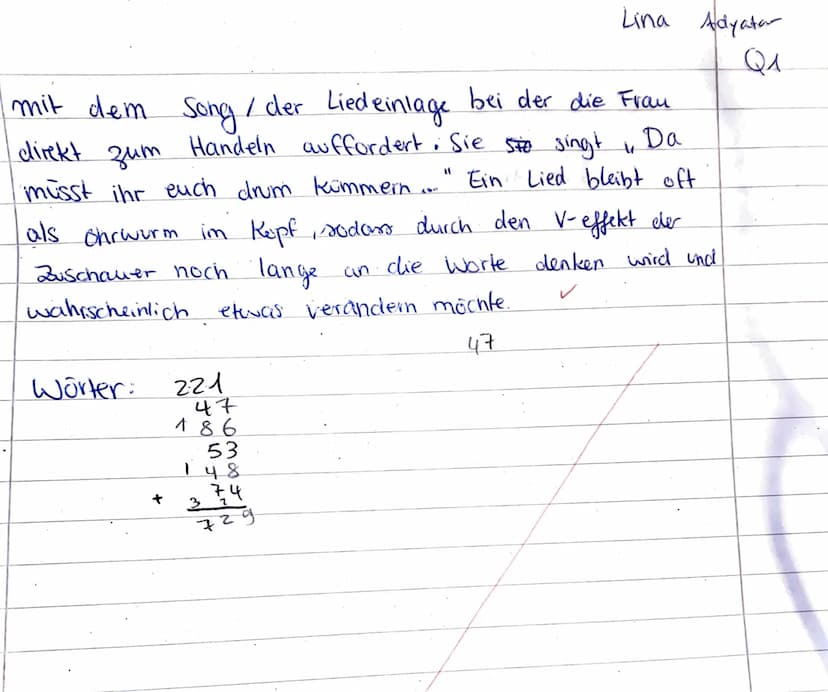 Lina Adyatar
Q1
mit dem Song / der Liedeinlage bei der die Frau
direkt zum Handeln auffordert. Sie singt „Da
müsst ihr euch drum kümmern..." Ein Lied bleibt oft
als Ohrwurm im Kopf, sodass durch den V-effekt der
Zuschauer noch lange an die Worte denken wird und
wahrscheinlich etwas verändern möchte. ✓
47
Wörter: 221
47
186
53
148
+ 74
3 2
729